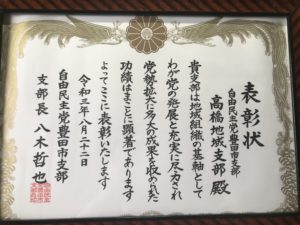 表彰状
自由民主党豊田市支部
高橋地域支部 殿
貴支部は地域組織の基軸として
わが党の発展と充実に尽力され
党勢拡大に多大の成果を収められた
功績はまことに顕著であります
よってここに表彰いたします
令和三年八月二十二日
自由民主党豊田市支部
支部長 八木哲也